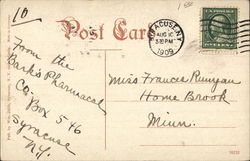 10
Post Card
SYRACUSE, N.Y.
AUG 10
3 30 PM
1909
From the
Bark's Pharmacal
Co.
Box 546
Syracuse
N.Y.
Miss Frances Runyan
Home Brook
Minn.